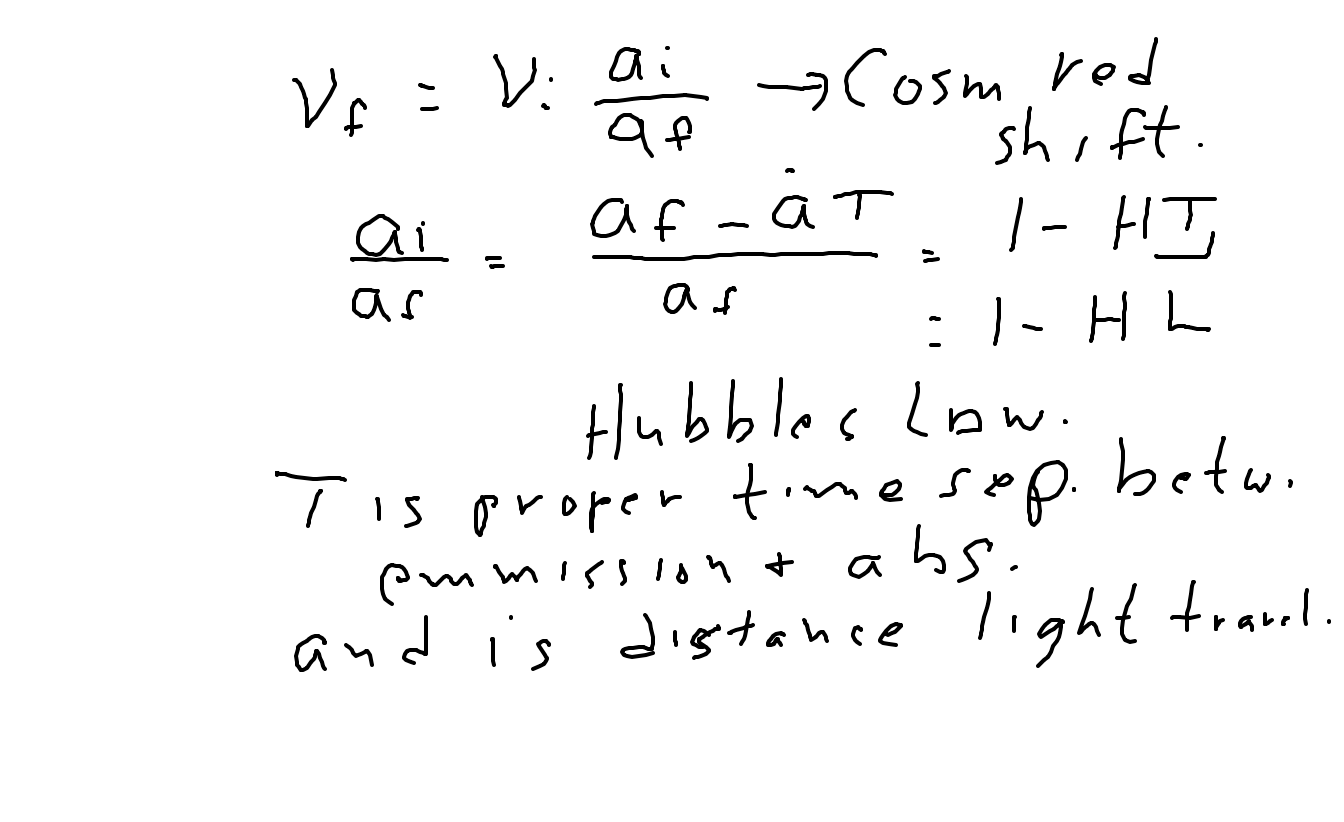 νf = νi ai/af → Cosm red
shift.
ai/af = (af - ȧT)/af = 1 - HT
= 1 - HL
Hubbles Law.
T is proper time sep. betw.
emmission + abs.
and is distance light travel.